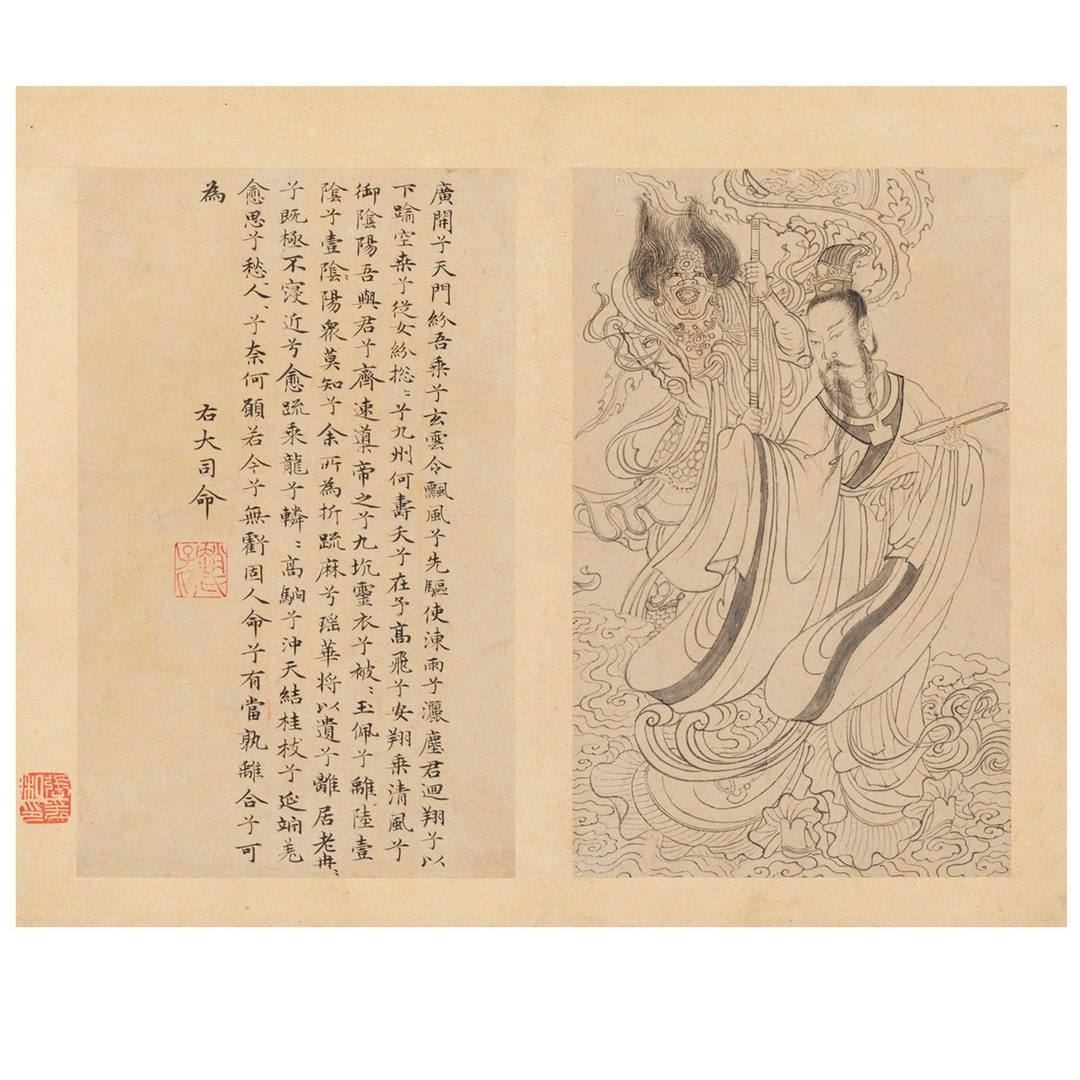 廣開兮天門紛吾乘兮玄雲令飄風兮先驅使涷雨兮灑塵君迴翔兮以
下踰空桒兮從女紛揔〻兮九州何壽夭兮在予高飛兮安翔乘清風兮
御陰陽吾與君兮齊速導帝之兮九坑靈衣兮被〻玉佩兮離陸壹
陰兮壹陰陽衆莫知兮余所為折疏麻兮瑤華将以遺兮離居老冉〻
兮既極不寖近兮愈疏乘龍兮轔〻高兮沖天結桂枝兮延竚羌
愈思兮愁人〻兮奈何願若今兮無虧固人命兮有當孰離合兮可
為
右大司命